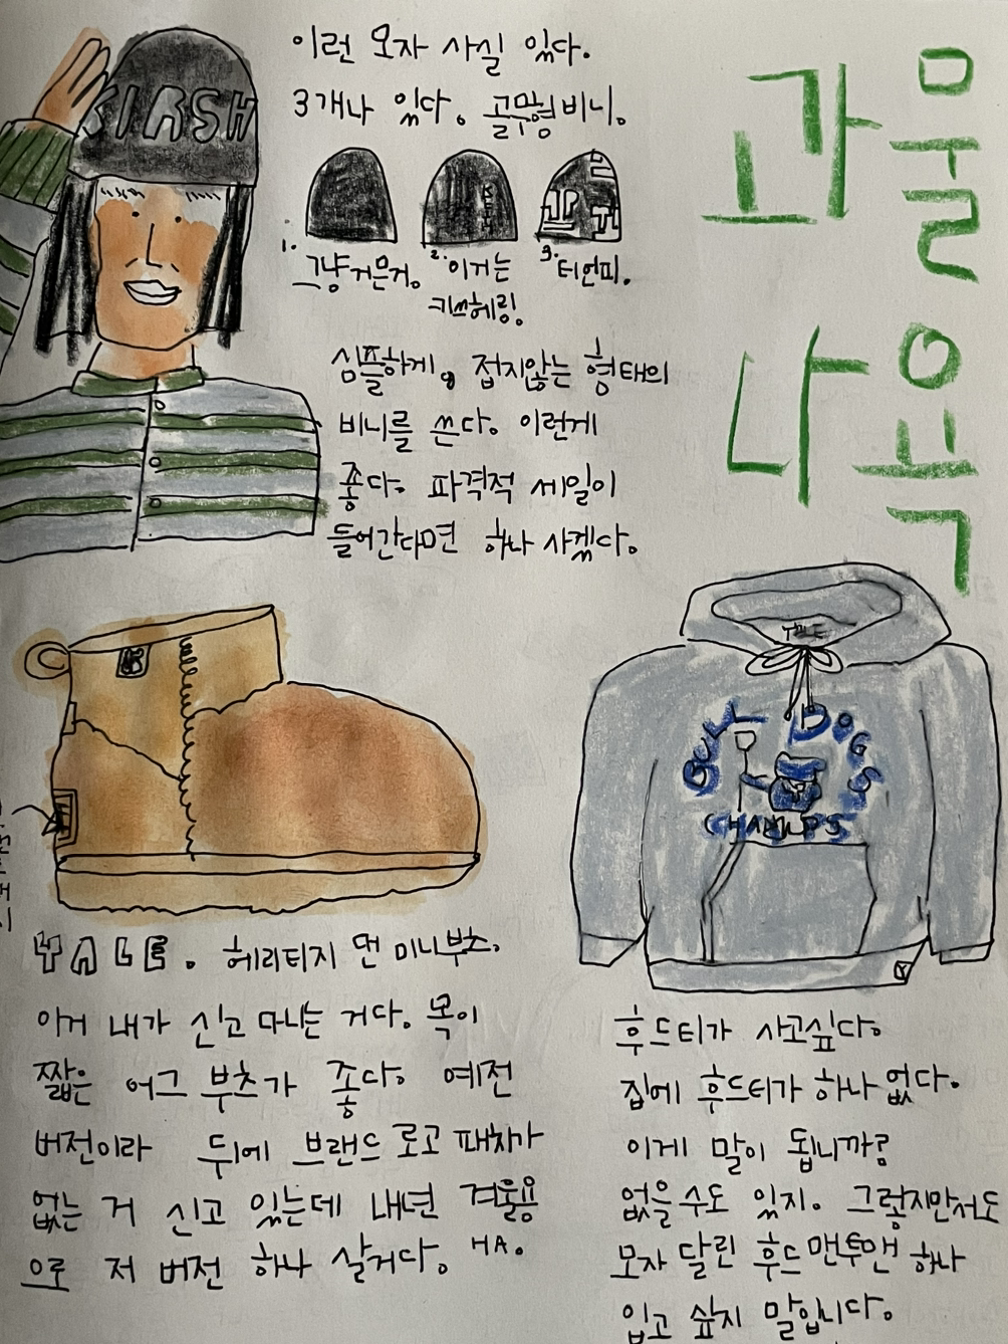 물욕과나
KIRSH
이런 모자 사실 있다.
3개나 있다. 골무형비니.
1. 그냥거은거.
2. 이거는
키쓰헤링.
3. 터언피.
심플하게. 접지않는 형태의
비니를 쓴다. 이런게
좋다. 파격적 세일이
들어간다면 하나 사겠다.
YALE. 헤리티지 먼 미니부츠.
이거 내가 신고 다니는 거다. 목이
짧은 어그 부츠가 좋다. 예전
버전이라 뒤에 브랜드 로고 패치가
없는 거 신고 있는데 내년 겨울용
으로 저 버전 하나 살거다. HA.
YALE
BULL DOGS
CHAMPS
후드티가 사고싶다.
집에 후드티가 하나 없다.
이게 말이 됩니까?
없을수도 있지. 그렇지만서도
모자 달린 후드 맨투맨 하나
입고 싶지 말입니다.